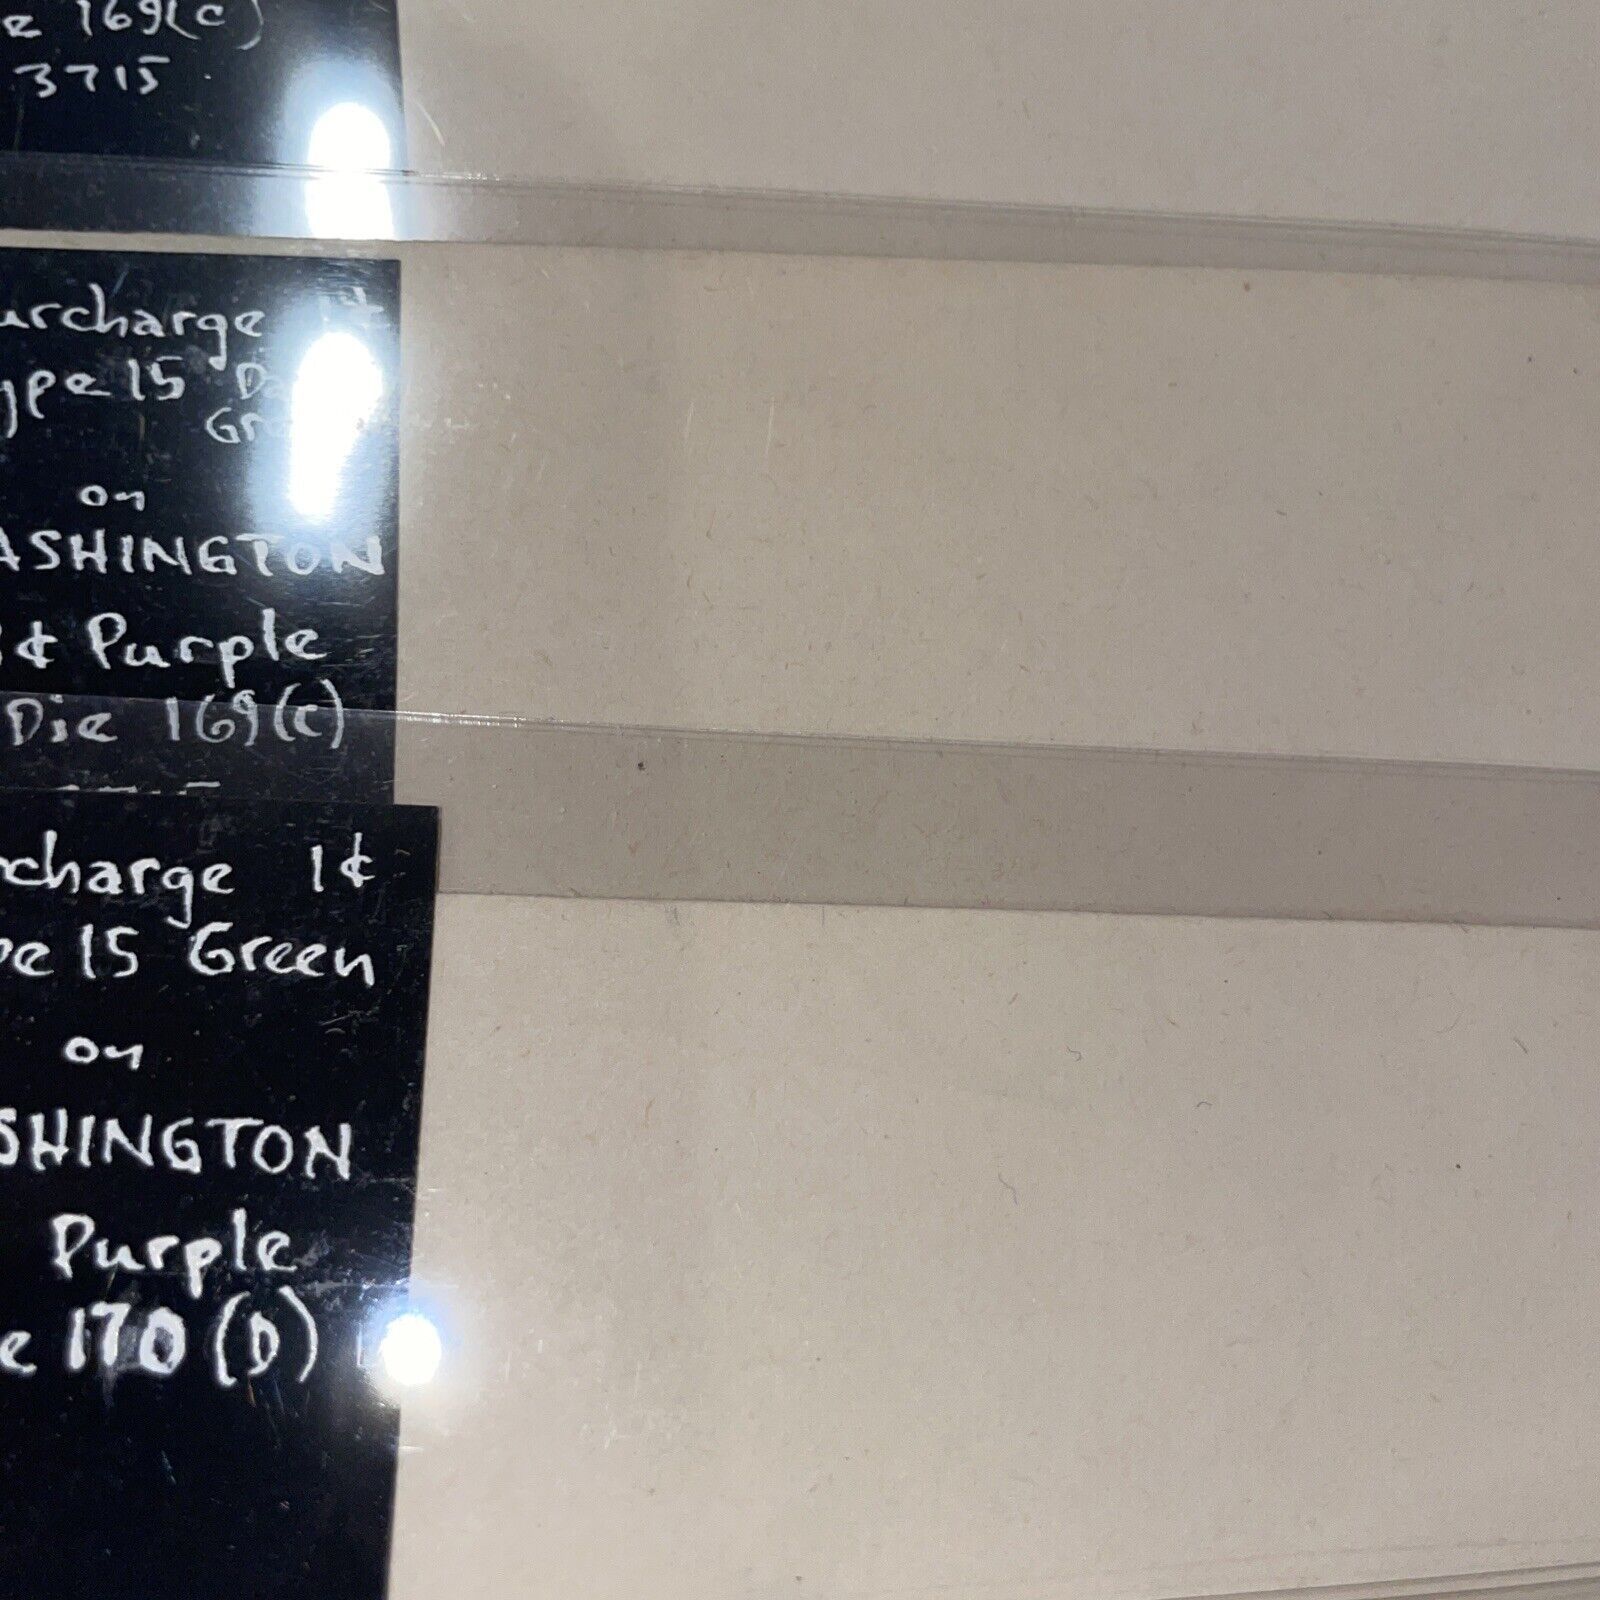 169(c)
3715
urcharge
ype 15
on
ASHINGTON
¢ Purple
Die 169(c)
charge 1¢
pe 15 Green
on
SHINGTON
Purple
e 170 (D)